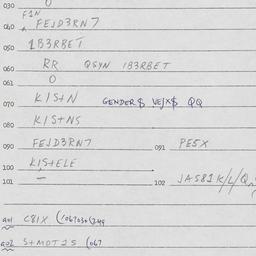 030 0
F1N
040 FEJD3RN7
050 1B3RBET
060 RR QSYN 1B3RBET
061 0
070 K/S+N GENDER$ VE/X$ QQ
080 K/S+NS
090 FEJD3RN7 091 PE5X
100 K/S+ELE
101 – 102 JA581K/L/Q
a01 C81X
a02 S+MDT25 (067